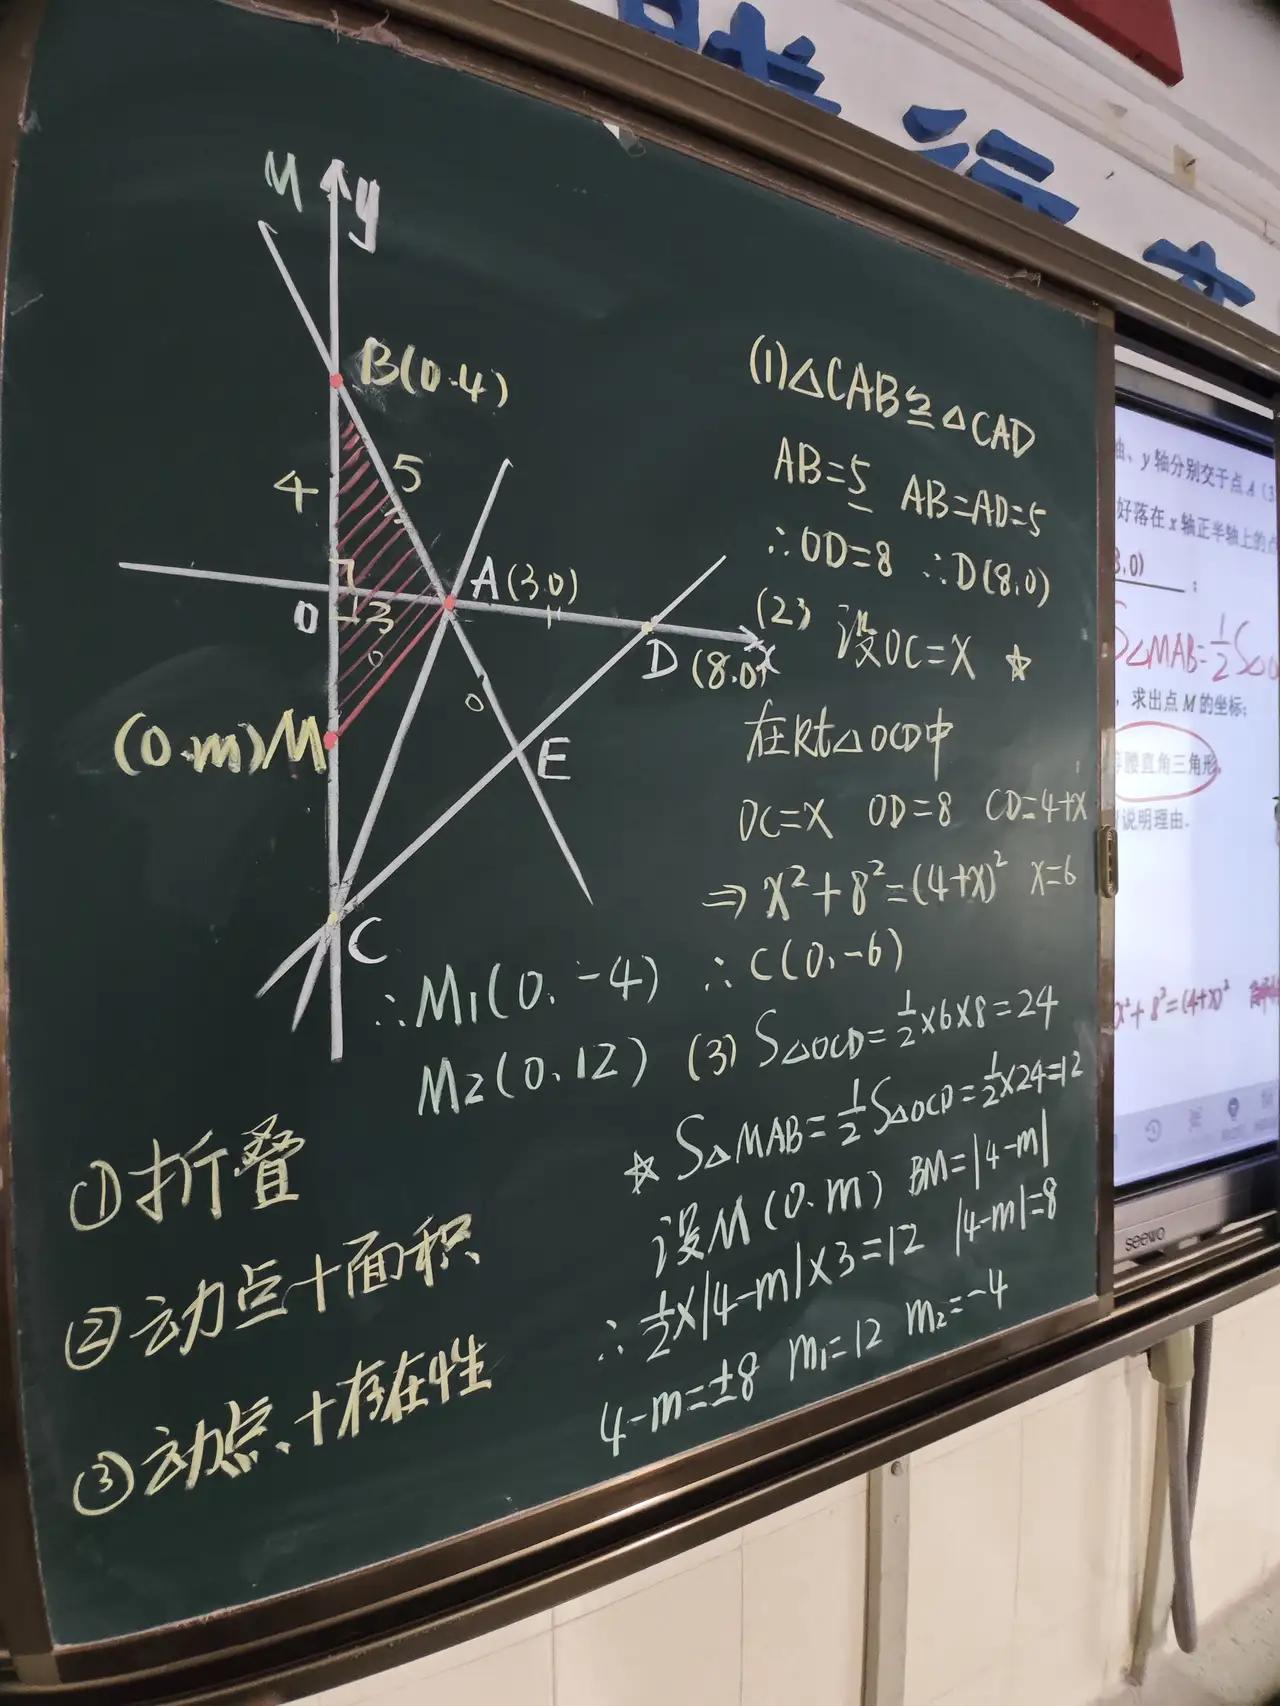 M y
B(0.4)
4
5
O
3
A(3.0)
D (8.0)
x
(0.m)M
E
C
(1)△CAB≌△CAD
AB=5 AB=AD=5
∴OD=8 ∴D(8.0)
(2) 设OC=X ☆
在Rt△OCD中
OC=X OD=8 CD=4+x
⇒ X²+8²=(4+X)² X=6
∴C(0.-6)
∴M1(0.-4)
M2(0.12)
(3) S△OCD=1/2×6×8=24
☆ S△MAB=1/2S△OCD=1/2×24=12
设M(0.m) BM=|4-m|
∴1/2×|4-m|×3=12 |4-m|=8
4-m=±8 m₁=12 m₂=-4
①折叠
②动点+面积
③动点、+存在性
、y轴分别交于点A(3
好落在x轴正半轴上的点
3,0)
S△MAB=1/2S△
,求出点M的坐标;
腰直角三角形
说明理由.
x²+8²=(4+x)²
seewo
行